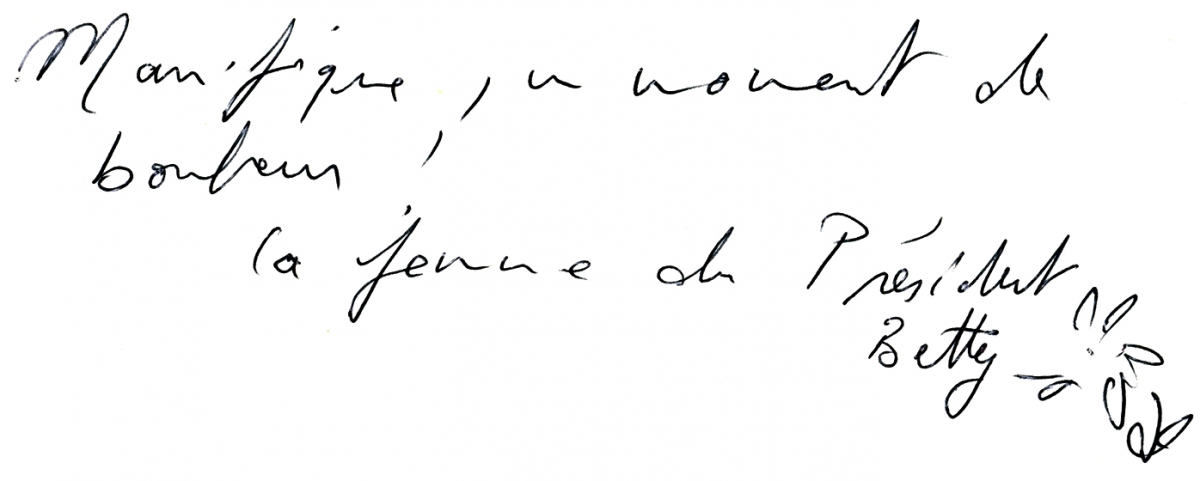 Manifique, un moment de
bonheur!
la femme du Président
Betty